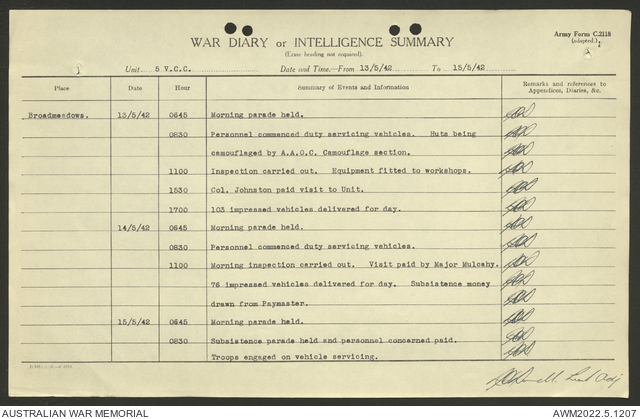 Army Form C.2118
(adapted.)
WAR DIARY or INTELLIGENCE SUMMARY
(Erase heading not required).
1 Unit 5 V.C.C. Date and Time.—From 13/5/42 To 15/5/42
Place Date Hour Summary of Events and Information Remarks and references to Appendices, Diaries, &c.
Broadmeadows. 13/5/42 0645 Morning parade held.
0830 Personnel commenced duty servicing vehicles. Huts being
camouflaged by A.A.O.C. Camouflage section.
1100 Inspection carried out. Equipment fitted to workshops.
1530 Col. Johnston paid visit to Unit.
1700 103 impressed vehicles delivered for day.
14/5/42 0645 Morning parade held.
0830 Personnel commenced duty servicing vehicles.
1100 Morning inspection carried out. Visit paid by Major Mulcahy.
76 impressed vehicles delivered for day. Subsistence money
drawn from Paymaster.
15/5/42 0645 Morning parade held.
0830 Subsistence parade held and personnel concerned paid.
Troops engaged on vehicle servicing.
Lieut Adj
AUSTRALIAN WAR MEMORIAL AWM2022.5.1207